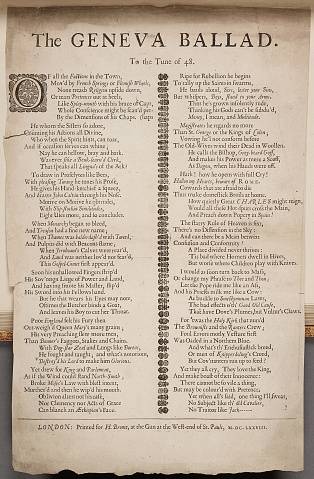 The GENEVA BALLAD.
To the Tune of 48.
OF all the Factions in the Town,
Mov'd by French Springs or Flemish Wheels,
None treads Religion upside down,
Or tears Pretences out at heels,
Like Splay-mouth with his brace of Caps,
Whose Conscience might be scan'd per-
By the Dimensions of his Chaps. (haps
He whom the Sisters so adore,
Counting his Actions all Divine,
Who when the Spirit hints, can roar,
And if occasion serves can whine;
Nay he can bellow, bray and bark,
Was ever like a
That speaks all
To draw in Proselytes like Bees,
With pleasing Twang he tones his Prose,
He gives his
And draws John Calvin through his Nose.
Motive on Motive he obtrudes,
Eight Uses more, and so concludes.
When Monarchy began to bleed,
And Treason had a fine new name;
When Thames was
And Pulpits did with Beacons flame;
When Jeroboam's Calves were rear'd,
And Laud was neither lov'd nor fear'd,
This Gospel-Comet first appear'd.
Soon his unhallowed Fingers strip'd
His Sov'reign Liege of Power and Land,
And having smote his Master, slip'd
His Sword into his Fellows hand.
But he that wears his Eyes may note,
Oft-times the Butcher binds a Goat,
And leaves his Boy to cut her Throat.
Poor England felt his Fury then
Out-weigh'd Queen Mary's many grains;
His very Preaching slew more men,
Than Bonner's Faggots, Stakes and Chains.
With Dog-star Zeal and Lungs like Boreas,
He fought and taught; and what's notorious,
Destroy'd his Lord to make him Glorious.
Yet drew for King and Parliament,
As if the Wind could stand North-South;
Broke Moses's Law with blest intent,
Murther'd and then he wip'd his mouth.
Oblivion alters not his case,
Nor Clemency nor Acts of Grace
Can blanch an Æthiopian's Face.
Ripe for Rebellion he begins
To rally up the Saints in swarms,
He bawls aloud, Sirs, leave your Sins,
But whispers, Boys, stand to your Arms.
Thus he's grown insolently rude,
Thinking his Gods can't be subdu'd,
Money, I mean, and Multitude.
Magistrates he regards no more
Than St. George or the Kings of Colen;
Vowing he'll not conform before
The Old-Wives wind their Dead in Woollen.
He calls the Bishop, Grey-beard Goff,
And makes his Power as mere a Scoff,
As Dagon, when his Hands were off.
Hark! how he opens with full Cry!
Hallow my Hearts, beware of ROME.
Cowards that are afraid to die
Thus make domestick Broils at home.
How quietly Great CHARLES might reign,
Would all these Hot-spurs cross the Main,
And Preach down Popery in Spain!
The starry Rule of Heaven is fixt,
There's no Dissension in the Sky:
And can there be a Mean betwixt
Confusion and Conformity!
A Place divided never thrives:
'Tis bad where Hornets dwell in Hives,
But worse where Children play with Knives.
I would as soon turn back to Mass,
Or change my Phrase to Thee and Thou;
Let the Pope ride me like an Ass,
And his Priests milk me like a Cow:
As buckle to Smectymnuan Laws,
The bad effects o'th' Good Old Cause,
That have Dove's Plumes, but Vulture's Claws.
For 'twas the Holy Kirk that nurs'd
The Brownists and the Ranters Crew;
Foul Errors motly Vesture first
Was Oaked in a Northern Blue.
And what's th' Enthusiastick breed,
Or men of Knipperdoling's Creed,
But Cov'nanters run up to seed!
Yet they all cry, They love the King,
And make boast of their Innocence:
There cannot be so vile a thing,
But may be colour'd with Pretence.
Yet when all's said, one thing I'll swear,
No Subject like th' old Cavalier,
No Traitor like Jack-
LONDON: Printed for H. Brome, at the Gun at the West-end of St. Pauls, M.DC.LXXVIII.